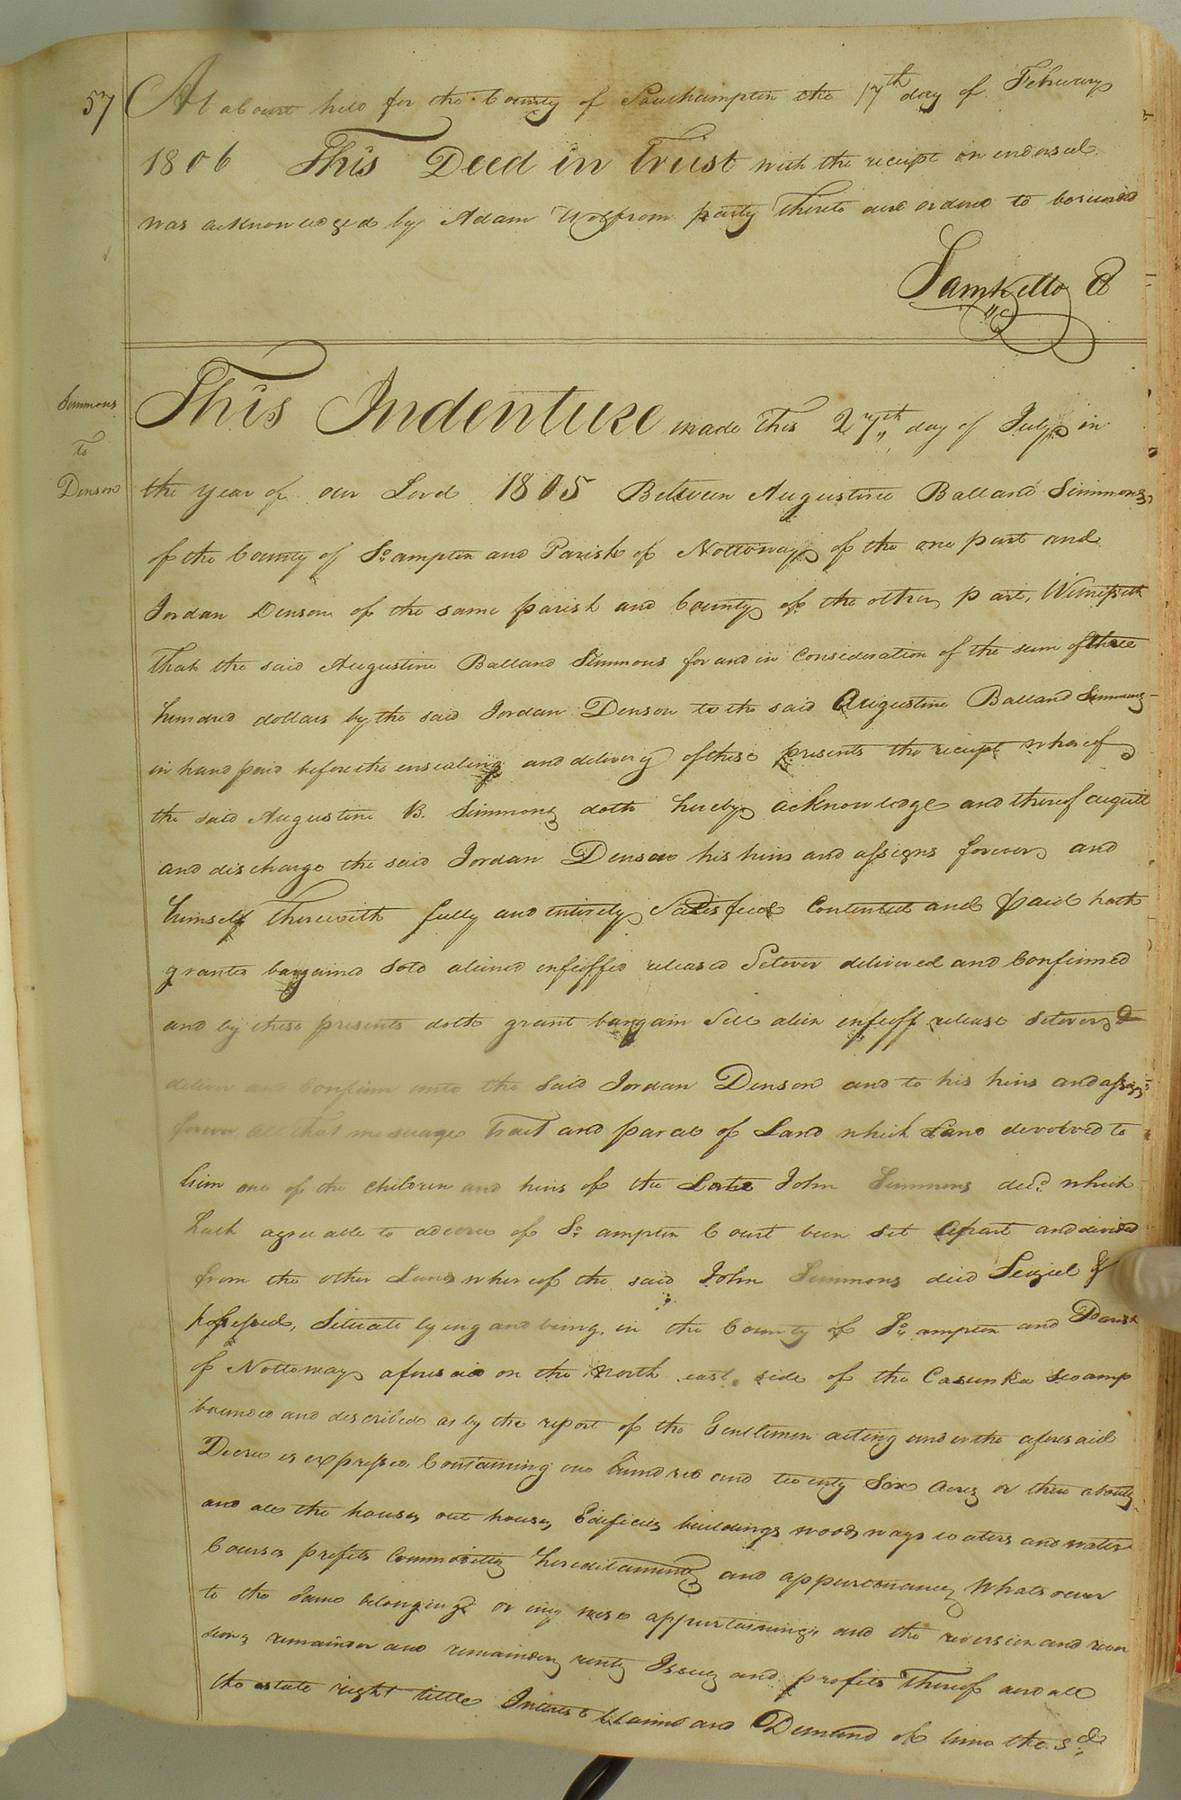 57
At a Court held for the County of Southampton the 17th day of February
1806 This Deed in Trust with the receipt on endorsed
was acknowledged by Adam Wolfrom party thereto and ordered to be record
Sam Kello C
Simmons
to
Denson
This Indenture made this 27th day of July in
the year of our Lord 1805 Between Augustine Balland Simmons
of the County of So ampton and Parish of Nottoway of the one part and
Jordan Denson of the same parish and County of the other part, Witnesseth
that the said Augustine Balland Simmons for and in Consideration of the sum of three
hundred dollars by the said Jordan Denson to the said Augustine Balland Simmons
in hand paid before the ensealing and delivery of these presents the receipt whereof
the said Augustine B. Simmons doth hereby acknowledge and thereof acquitt
and discharge the said Jordan Denson his heirs and assigns forever and
himself therewith fully and entirely Satisfied Contented and paid hath
granted bargained sold aliened enfeoffed released Setover delivered and Confirmed
and by these presents doth grant bargain Sell alien enfeoff release setover &
deliver and Confirm unto the said Jordan Denson and to his heirs and assigns
forever all that messuage Tract and parcel of Land which Land devolved to
him one of the children and heirs of the Late John Simmons decd. which
hath agreeable to a decree of So ampton Court been Set apart and divided
from the other Land whereof the said John Simmons died Seized &
possessed, Situate lying and being in the County of So ampton and Parish
of Nottoway aforesaid on the north east side of the Swamp
bounded and described as by the report of the Gentlemen acting under the aforesaid
Decree is expressed Containing one hundred and twenty Six Acres or there abouts
and all the houses out houses, Edifices buildings woods ways waters and water
Courses profits Commodities Hereditaments and appurtenances Whatsoever
to the same belonging or any wise appurtaining, and the reversion and rever
sions remainder and remainders rents Issues and profits Thereof and all
the estate right title Interest Claims and Demand of him the sd.